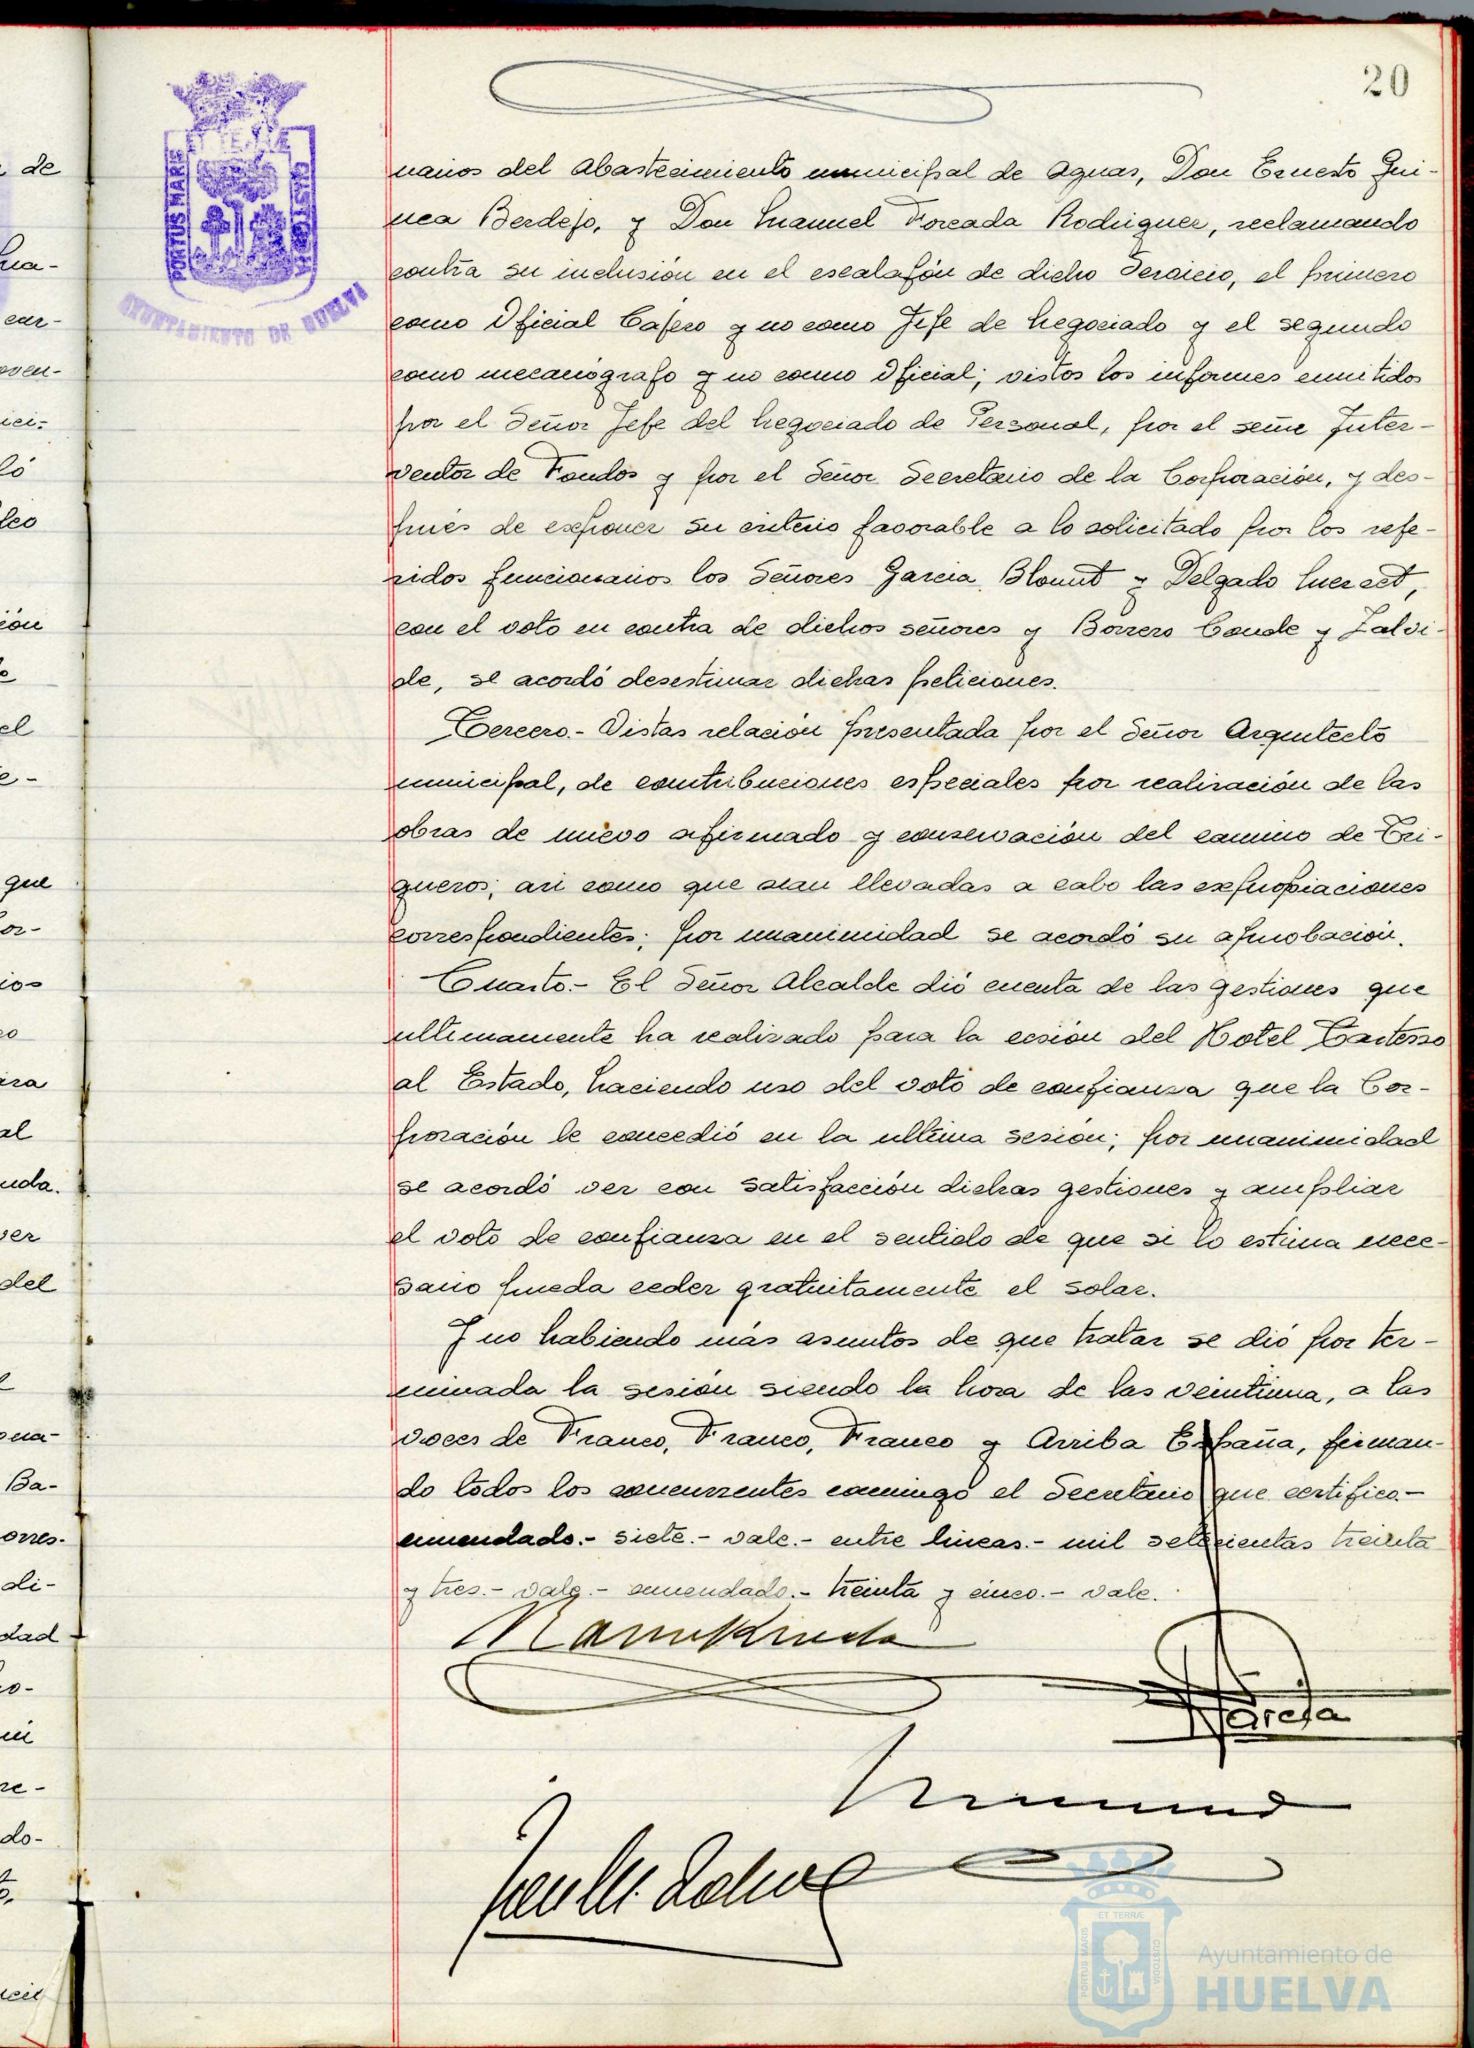 20
PORTUS MARIS
ET TERRÆ
CUSTODIA
AYUNTAMIENTO DE HUELVA
narios del abastecimiento municipal de aguas, Don Ernesto Gui-
nea Berdejo, y Don Manuel Forcada Rodriguez, reclamando
contra su inclusión en el escalafón de dicho Servicio, el primero
como Oficial Cajero y no como Jefe de Negociado y el segundo
como mecanógrafo y no como Oficial; vistos los informes emitidos
por el Señor Jefe del Negociado de Personal, por el señor Inter-
ventor de Fondos y por el Señor Secretario de la Corporación, y des-
pués de exponer su criterio favorable a lo solicitado por los refe-
ridos funcionarios los Señores Garcia Blount y Delgado
con el voto en contra de dichos señores y Borrero Conde y Zalvi-
de, se acordó desestimar dichas peticiones.
Tercero.- Vistas relación presentada por el Señor Arquitecto
municipal, de contribuciones especiales por realización de las
obras de nuevo afirmado y conservación del camino de Tri-
gueros; asi como que sean llevadas a cabo las expropiaciones
correspondientes; por unanimidad se acordó su aprobación.
Cuarto.- El Señor Alcalde dió cuenta de las gestiones que
ultimamente ha realizado para la cesión del Hotel Tartesso
al Estado, haciendo uso del voto de confianza que la Cor-
poración le concedió en la ultima sesión; por unanimidad
se acordó ver con satisfacción dichas gestiones y ampliar
el voto de confianza en el sentido de que si lo estima nece-
sario pueda ceder gratuitamente el solar.
Y no habiendo más asuntos de que tratar se dió por ter-
minada la sesión siendo la hora de las veintiuna, a las
voces de Franco, Franco, Franco y Arriba España, firman-
do todos los concurrentes conmigo el Secretario que certifico.-
enmendado.- siete.- vale.- entre lineas.- mil setecientas treinta
y tres.- vale.- enmendado.- treinta y cinco.- vale.
Garcia
ET TERRÆ
PORTUS MARIS
CUSTODIA
Ayuntamiento de
HUELVA